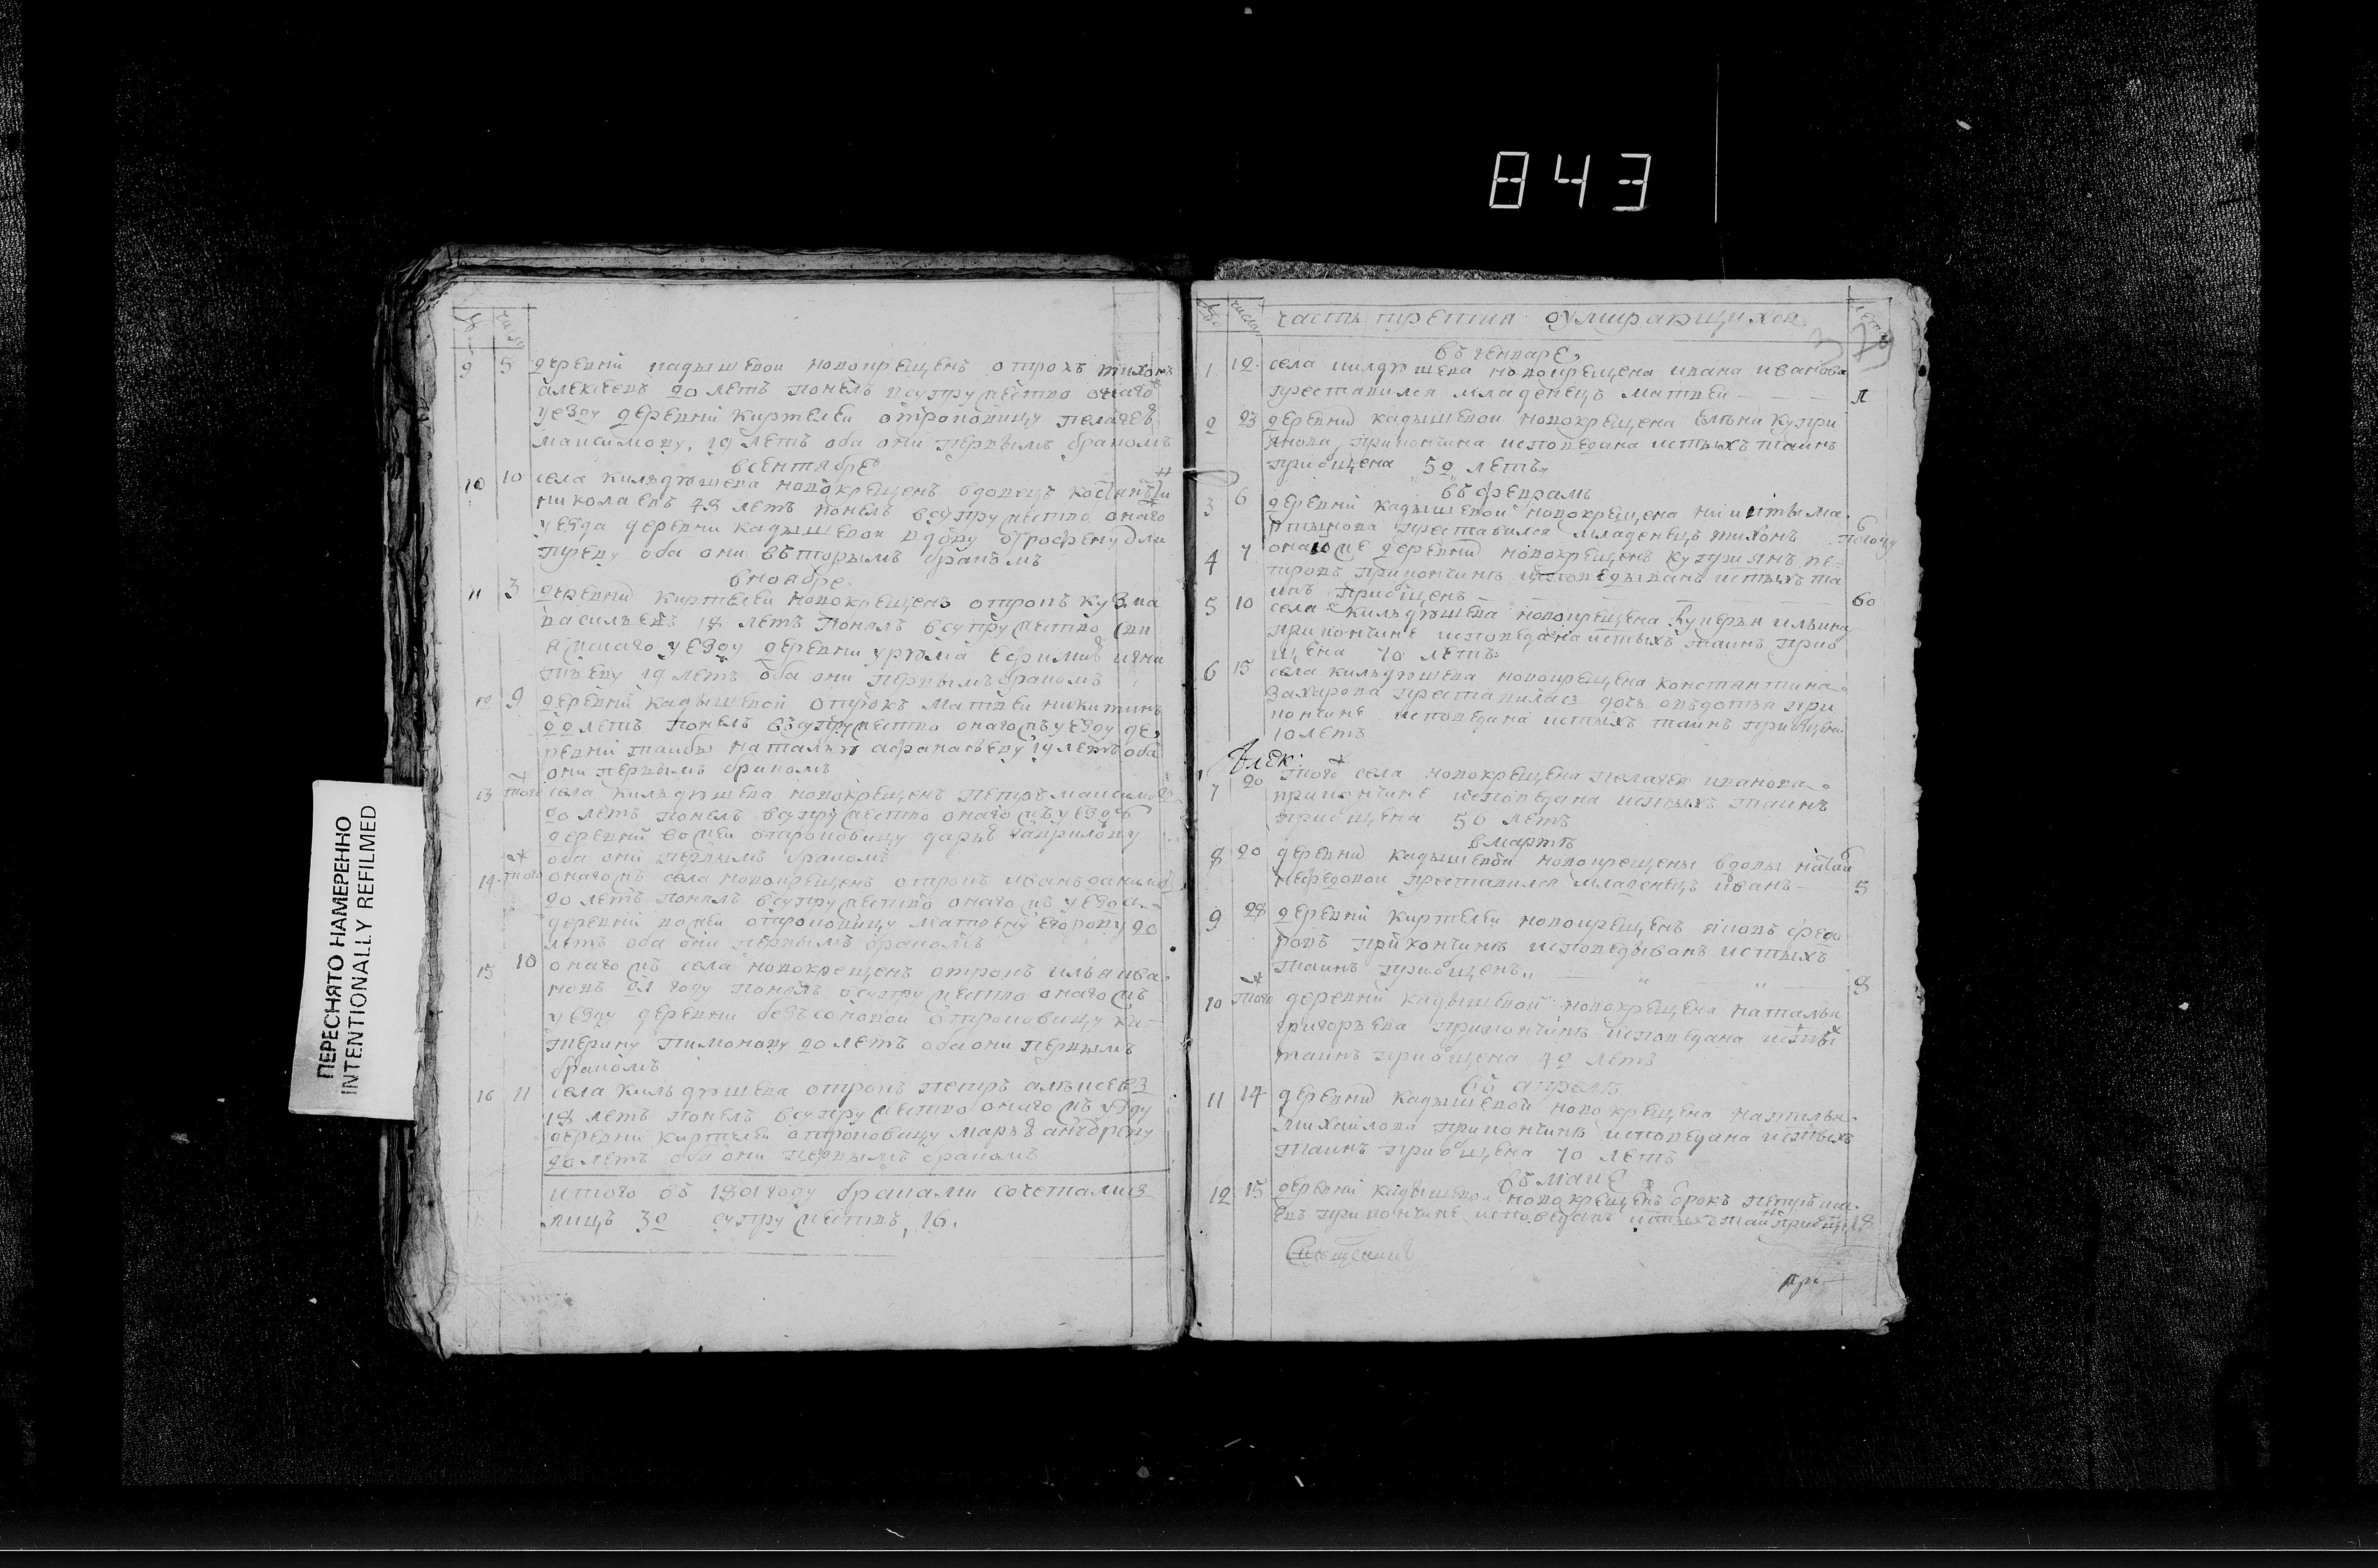 843
ПЕРЕСНЯТО НАМЕРЕННО
INTENTIONALLY REFILMED
9 5 деревни кадышевой новокрещенъ отрокъ тихонъ
алексеевъ 20 летъ понелъ всупружество онаго
уезду деревни киртели отроковицу пелагею
максимову, 19 летъ оба они первымъ бракомъ
всентябре
10 10 села кильдюшева новокрещенъ вдовецъ
николаевъ 48 летъ понелъ всупружество онаго
уезда деревни кадышевой вдову
оба они вторымъ бракомъ
вноябре
11 3 деревни киртели новокрещенъ отрокъ кузма
василъевъ 18 летъ понялъ всупружество сви
яжскаго уезду деревни урюма ефимию игна
тъеву 19 летъ оба они первымъ бракомъ
12 9 деревни кадышевой отрокъ матвей никитинъ
20 летъ понелъ всупружество онагожъ уезду де
ревни таибы наталъю афанасъеву 19 летъ оба
они первымъ бракомъ
13 того села кильдюшева новокрещенъ петръ максимовъ
20 летъ понелъ всупружество онагожъ уезду
деревни отроковицу даръю гаврилову
оба они первымъ бракомъ
14 того онагожъ села новокрещенъ отрокъ иванъ даниловъ
20 летъ понялъ всупружество онагожъ уезду
деревни отроковицу матрену егорову 20
летъ оба они первымъ бракомъ
15 10 онагожъ села новокрещенъ отрокъ илья ива
новъ 21 году понялъ всупружество онагожъ
уезду деревни безъсоновой отроковицу ка
терину тимонову 20 летъ оба они первымъ
бракомъ
16 11 села кильдюшева отрокъ петръ алексеевъ
18 летъ понелъ всупружество онагожъ уезду
деревни киртели отроковицу маръю андрееву
20 летъ оба они первымъ бракомъ
итого въ 1801 году браками сочеталисъ
лицъ 32 супружествъ, 16.
число часть третия оумирающихся лета
въ генваре
1 12 села килдюшева новокрещена ивана иванова
преставился младенецъ матвей — — — л
2 23 деревни кадышевой новокрещена елена купри
янова прикончина исповедана истыхъ таинъ
приобщена 50 летъ
въ феврале
3 6 деревни кадышевой новокрещена никиты ма
ртынова преставился младенецъ тихонъ
4 7 оной же деревни новокрещенъ куприянъ пе-
тровъ прикончине исповедыванъ истыхъ та
инъ приобщенъ 60
5 10 села кильдюшева новокрещена илъина
прикончине исповедана истыхъ таинъ приоб
щена 70 летъ
6 15 села кильдюшева новокрещена константина
захарова преставиласъ дочъ овъдотъя при
кончине исповедана истыхъ таинъ приобщена
10 летъ
Алек:
7 20 того села новокрещена пелагея иванова
прикончине исповедана истыхъ таинъ
приобщена 50 летъ
вмарте
8 20 деревни кадышевой новокрещены вдовы
нефедовой преставился младенецъ иванъ — 5
9 28 деревни киртели новокрещенъ яковъ федо
ровъ прикончине исповедыванъ истыхъ
таинъ приобщенъ 8
10 того деревни кадышевой новокрещена наталья
григоръева прикончине исповедана истых
таинъ приобщена 42 летъ
въ апреле
11 14 деревни кадышевой новокрещена наталъя
михаилова прикончине исповедана истыхъ
таинъ приобщена 70 летъ
въ маие
12 15 деревни кадышевой новокрещенъ отрокъ петръ
евъ прикончине исповеданъ истыхъ таинъ приобщен 18
Священникъ
при